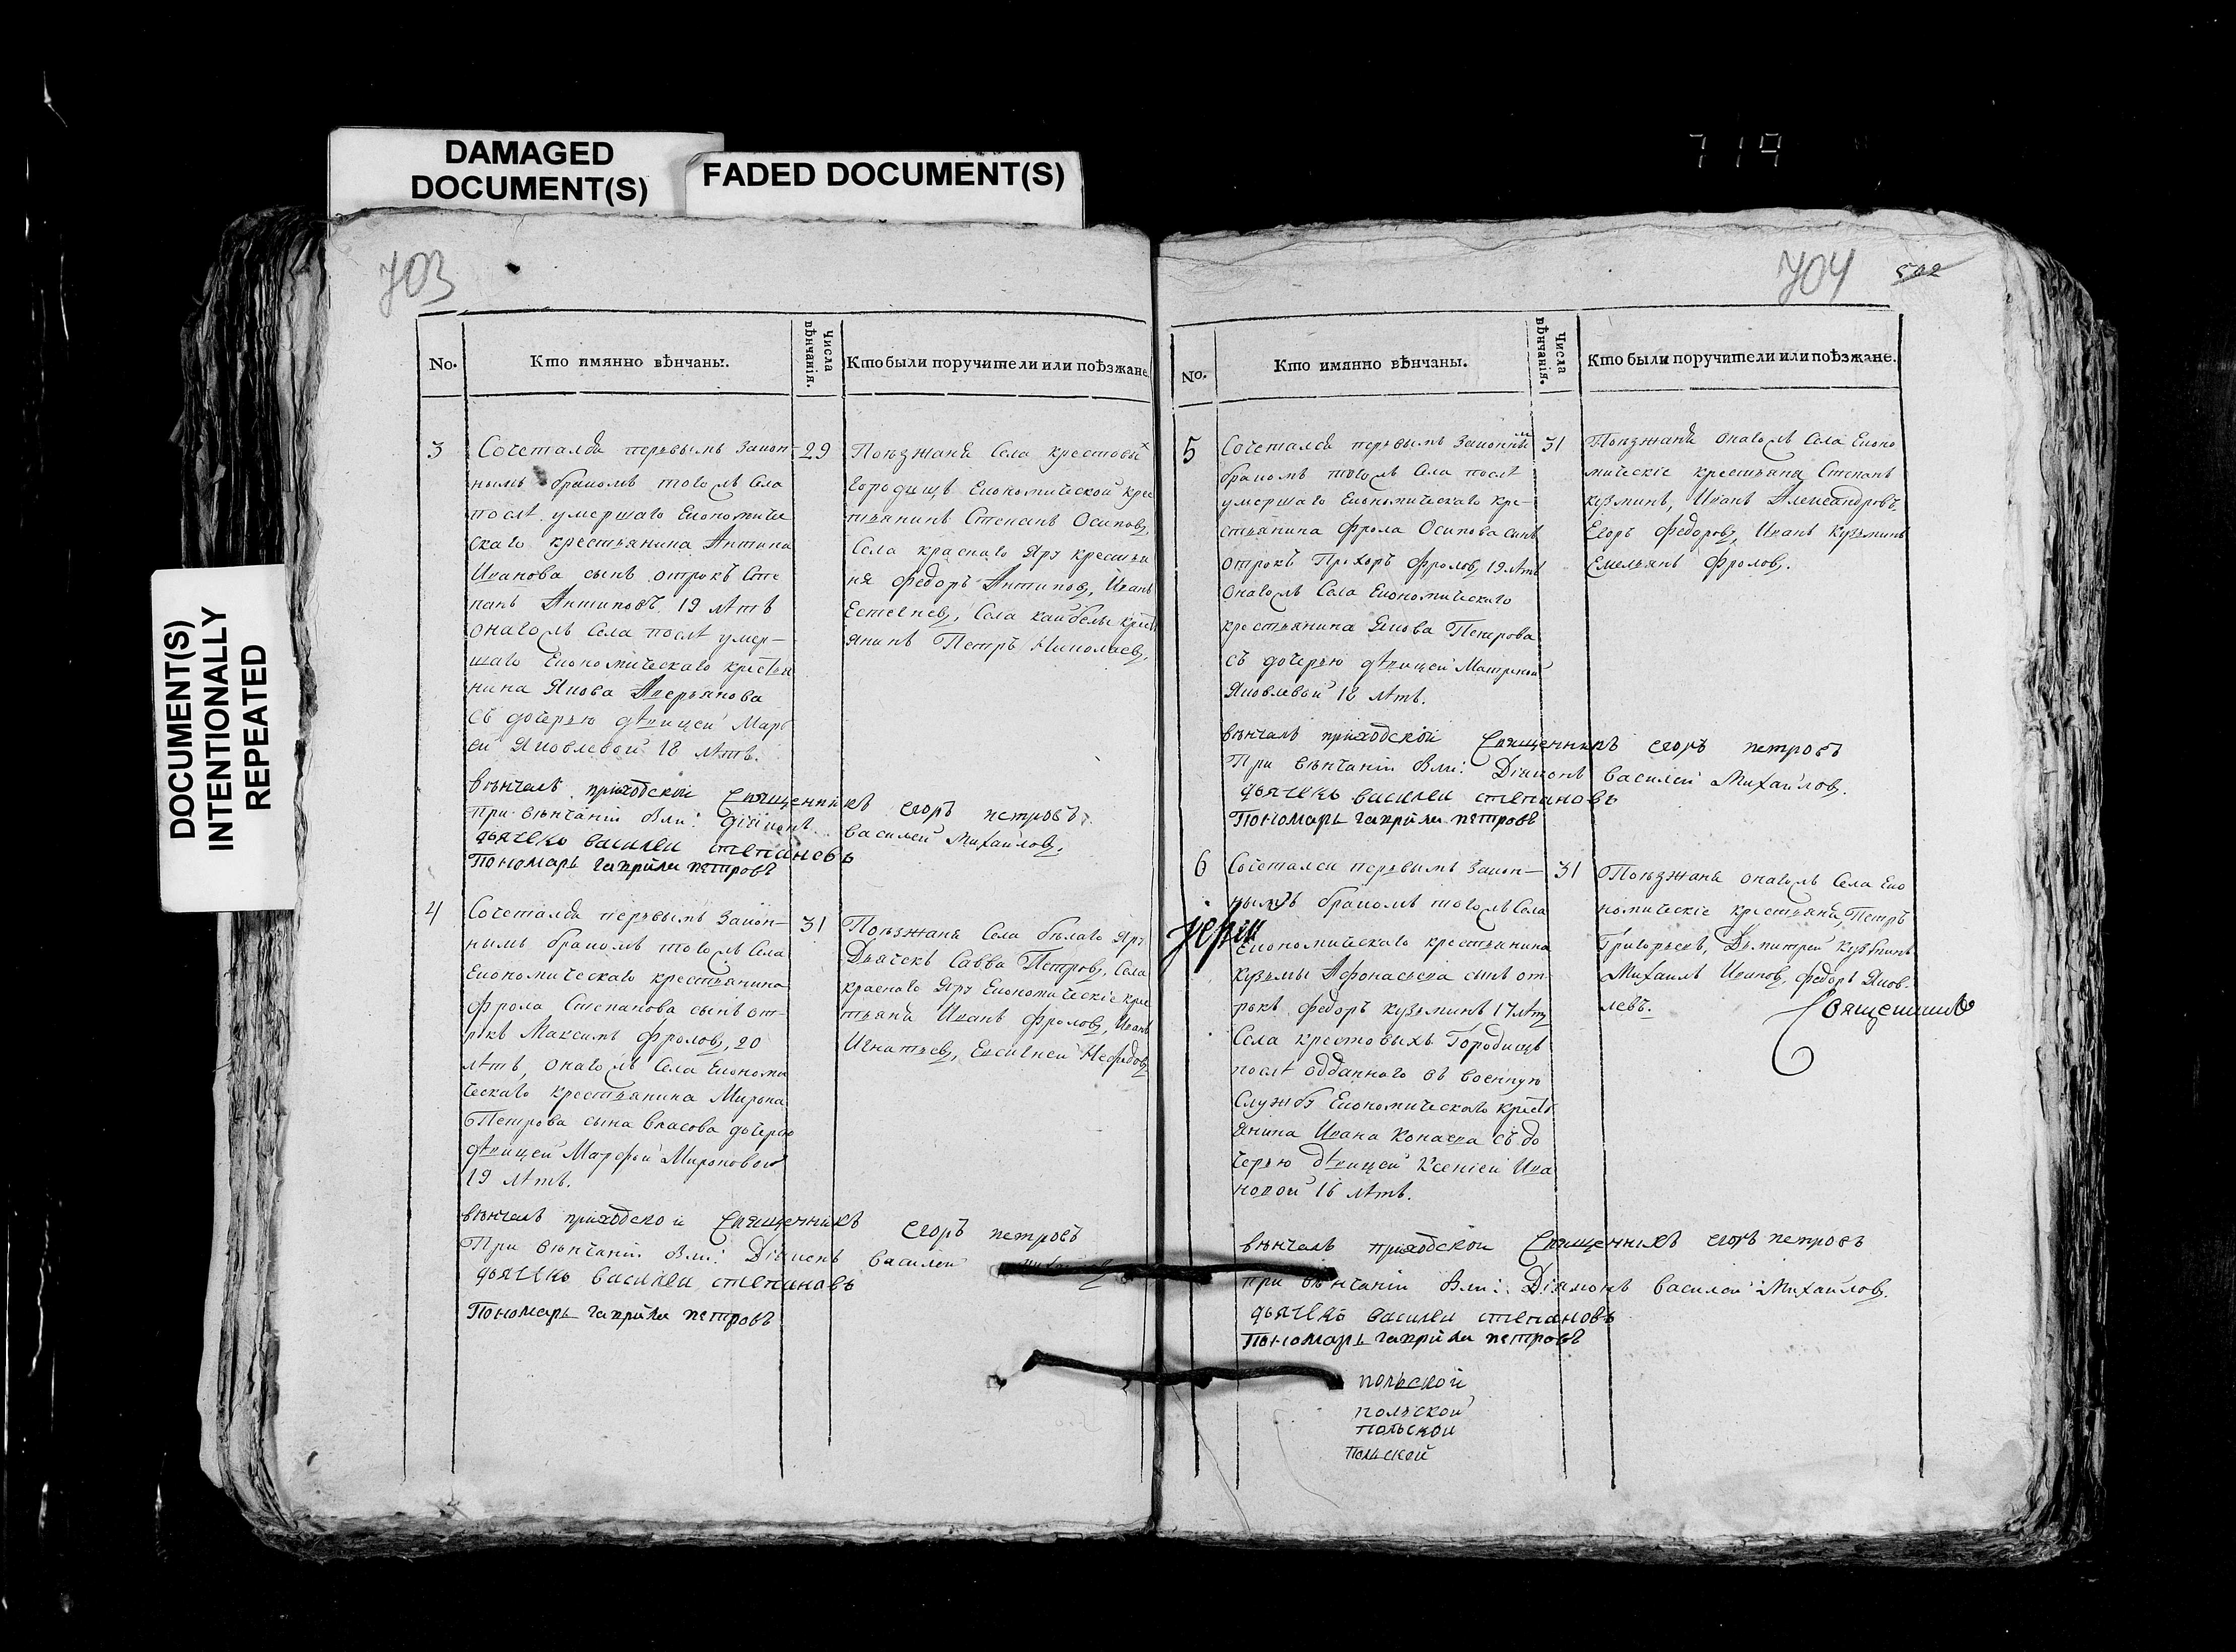 DAMAGED
DOCUMENT(S)
FADED DOCUMENT(S)
DOCUMENT(S)
INTENTIONALLY
REPEATED
719
703
No.
Кто имянно вѣнчаны.
Числа
вѣнчанія.
Кто были поручители или поѣзжане.
3
Сочетался первымъ закон-
нымъ бракомъ тогожъ села
послѣ умершаго Економиче
скаго крестьянина Антипа
Иванова сынъ отрокъ Сте
панъ Антиповъ 19 лѣтъ
онагожъ села послѣ умер-
шаго Економическаго крестья
нина Якова Аверьянова
съ дочерью дѣвицей Марь
ей Яковлевой 18 лѣтъ.
29
Поѣзжаня села крестовы х
городищъ Економической крес
тьянинъ Степанъ Осиповъ,
Села краснаго Яру крестья
ня федоръ Антиповъ, Иванъ
Естегнеев, Села кайбелы крест
янинъ Петръ Николаевъ,
вѣнчалъ приходской Священникъ егоръ петровъ
При вѣнчаніи были: діяконъ василей Михайловъ.
дьячекъ василеи степановъ
Пономарь гаврила петровъ
4
Сочетался первымъ закон-
нымъ бракомъ тогожъ села
Економическаго крестьянина
фрола Степанова сынъ от-
рокъ Максимъ фроловъ, 20
лѣтъ, онагожъ села Економи
ческаго крестьянина Мирона
Петрова сына Власова дочерью
дѣвицей Марфой Мироновой
19 лѣтъ.
31
Поѣзжаня Села бѣлаго Яру
Дьячекъ Савва Петровъ, Села
краснаго Яру Економическіе крес
тьяня Иванъ фроловъ, Иванъ
Игнатьевъ, Евсигней Нефедовъ
вѣнчалъ приходской Священникъ егоръ петровъ
При вѣнчаніи были: Діяконъ василей
дьячекъ василеи степановъ
Пономарь гаврила петровъ
704
502
No.
Кто имянно вѣнчаны.
Числа
вѣнчанія.
Кто были поручители или поѣзжане.
5
Сочетался первымъ законнымъ
бракомъ тогожъ села послѣ
умершаго Економическаго кре-
стьянина фрола Осипова сынъ
отрокъ Прохоръ фроловъ, 19 лѣтъ
онагожъ Села Економическаго
крестьянина Якова Петрова
съ дочерью дѣвицей Матреной
Яковлевой 18 лѣтъ.
31
Поѣзжаня онагожъ села Еконо
мическіе крестьяня Степанъ
кузминъ, Иванъ Александровъ,
Егоръ федоровъ, Иванъ кузьминъ
Емельянъ фроловъ.
вѣнчалъ приходской Священникъ егоръ петровъ
При вѣнчаніи были: Діяконъ василей Михайловъ.
дьячекъ василеи степановъ
Пономарь гаврила петровъ
6
Сочетался первымъ закон-
нымъ бракомъ тогожъ Села
Економическаго крестьянина
кузьмы Афонасьева сынъ от
рокъ федоръ кузьминъ 17 лѣтъ
Села крестовыхъ Городищъ
послѣ одданного въ военную
Службу Економическаго крестъ
янина Ивана Конаева съ до
черью дѣвицей Ксеніей Ива
новой 16 лѣтъ.
31
Поѣзжаня онагожъ Села Еко
номическіе крестьяня, Петръ
Григорьевъ, Дъмитрей кузьминъ
Михаилъ Ивановъ, федоръ Яков-
левъ.
вѣнчалъ приходской Священникъ егоръ петровъ
при вѣнчаніи были: Діяконъ василей Михайловъ.
дьячекъ василеи степановъ
Пономарь гаврила петровъ
польской
польской
польской
польской